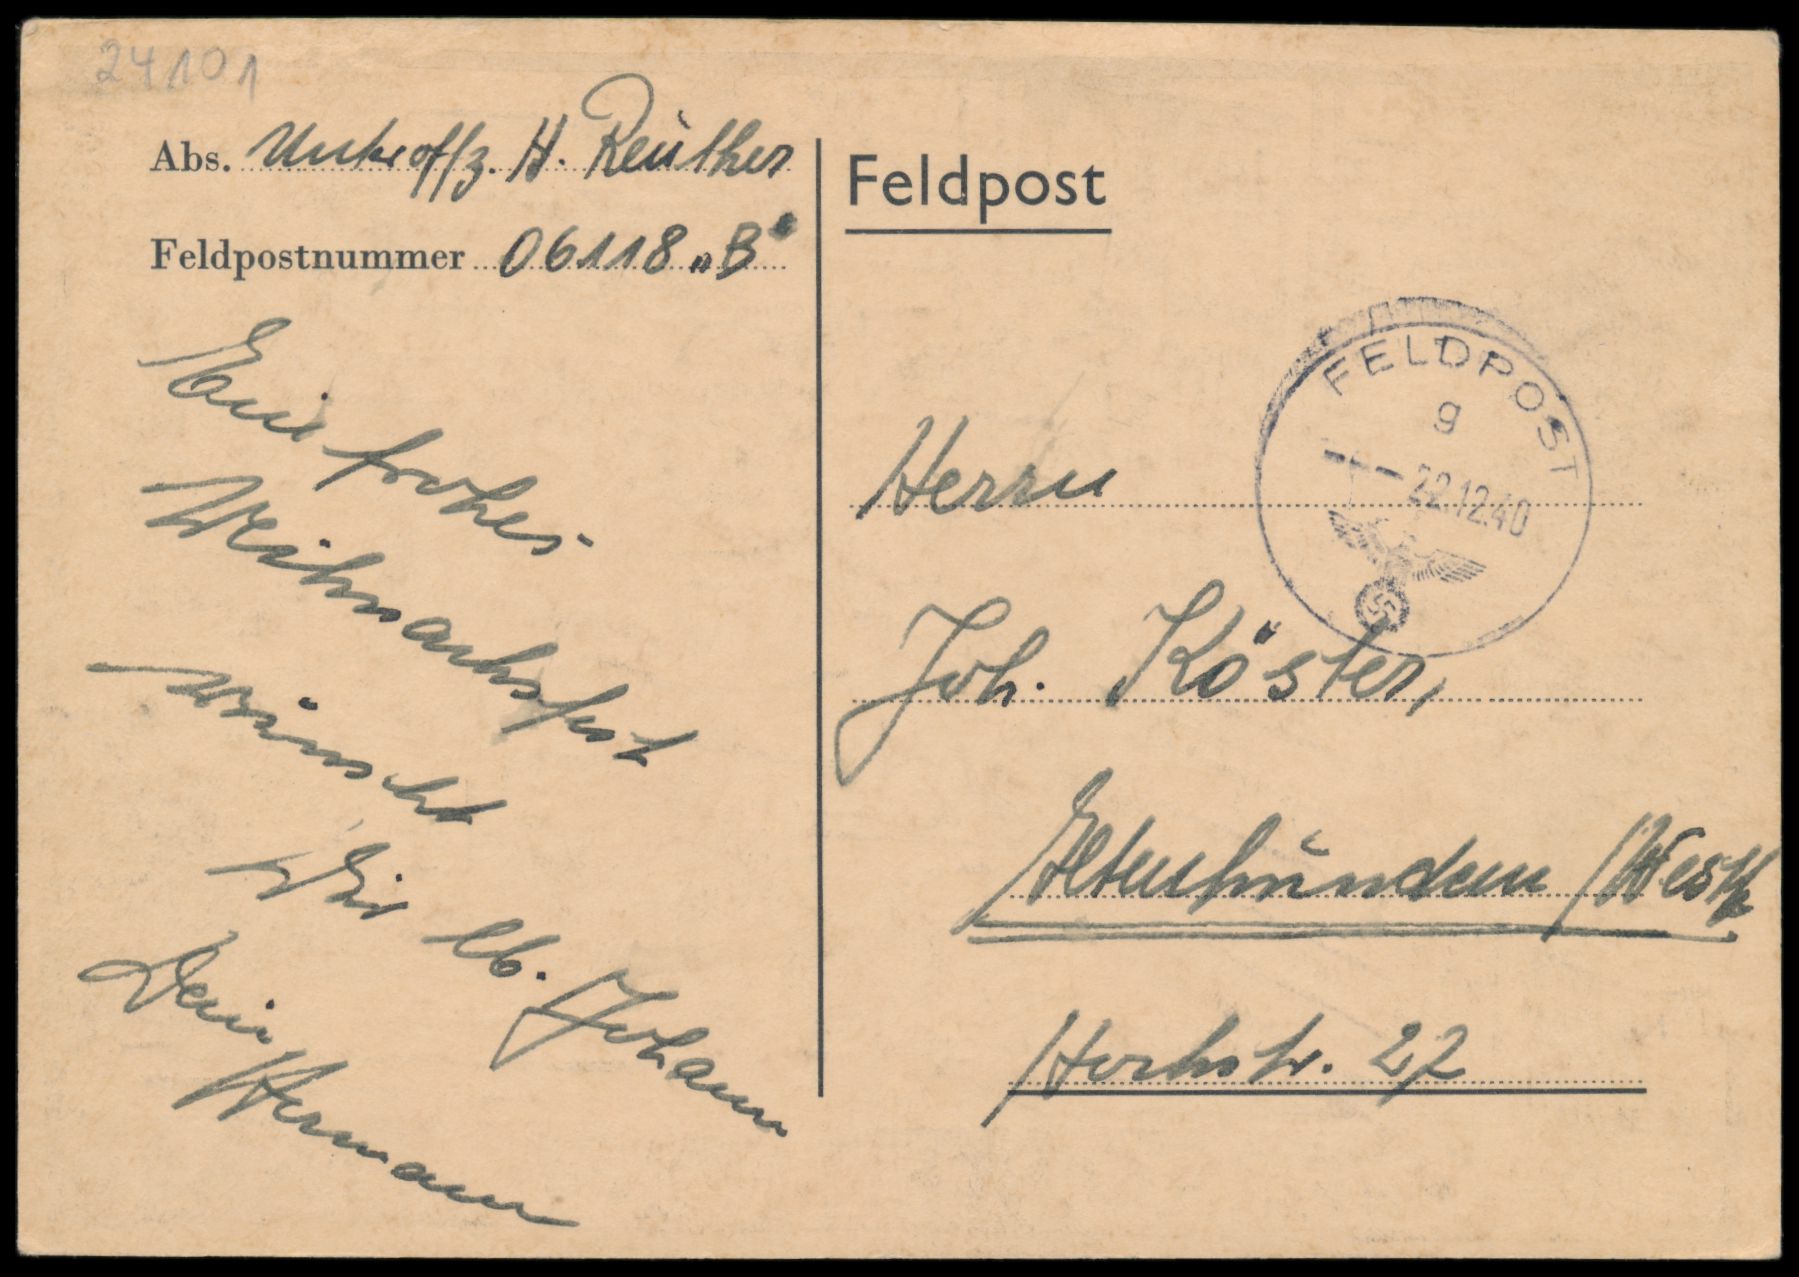 24101
Abs. Unteroffz. H. Reuther
Feldpostnummer 06118 „B“
Ein frohes
Weihnachtsfest
wünscht
Dir lb. Johann
Dein
Hermann
Feldpost
FELDPOST
g
22.12.40
Herrn
Joh. Köster,
Altenhundem /Westf
Hochstr. 27